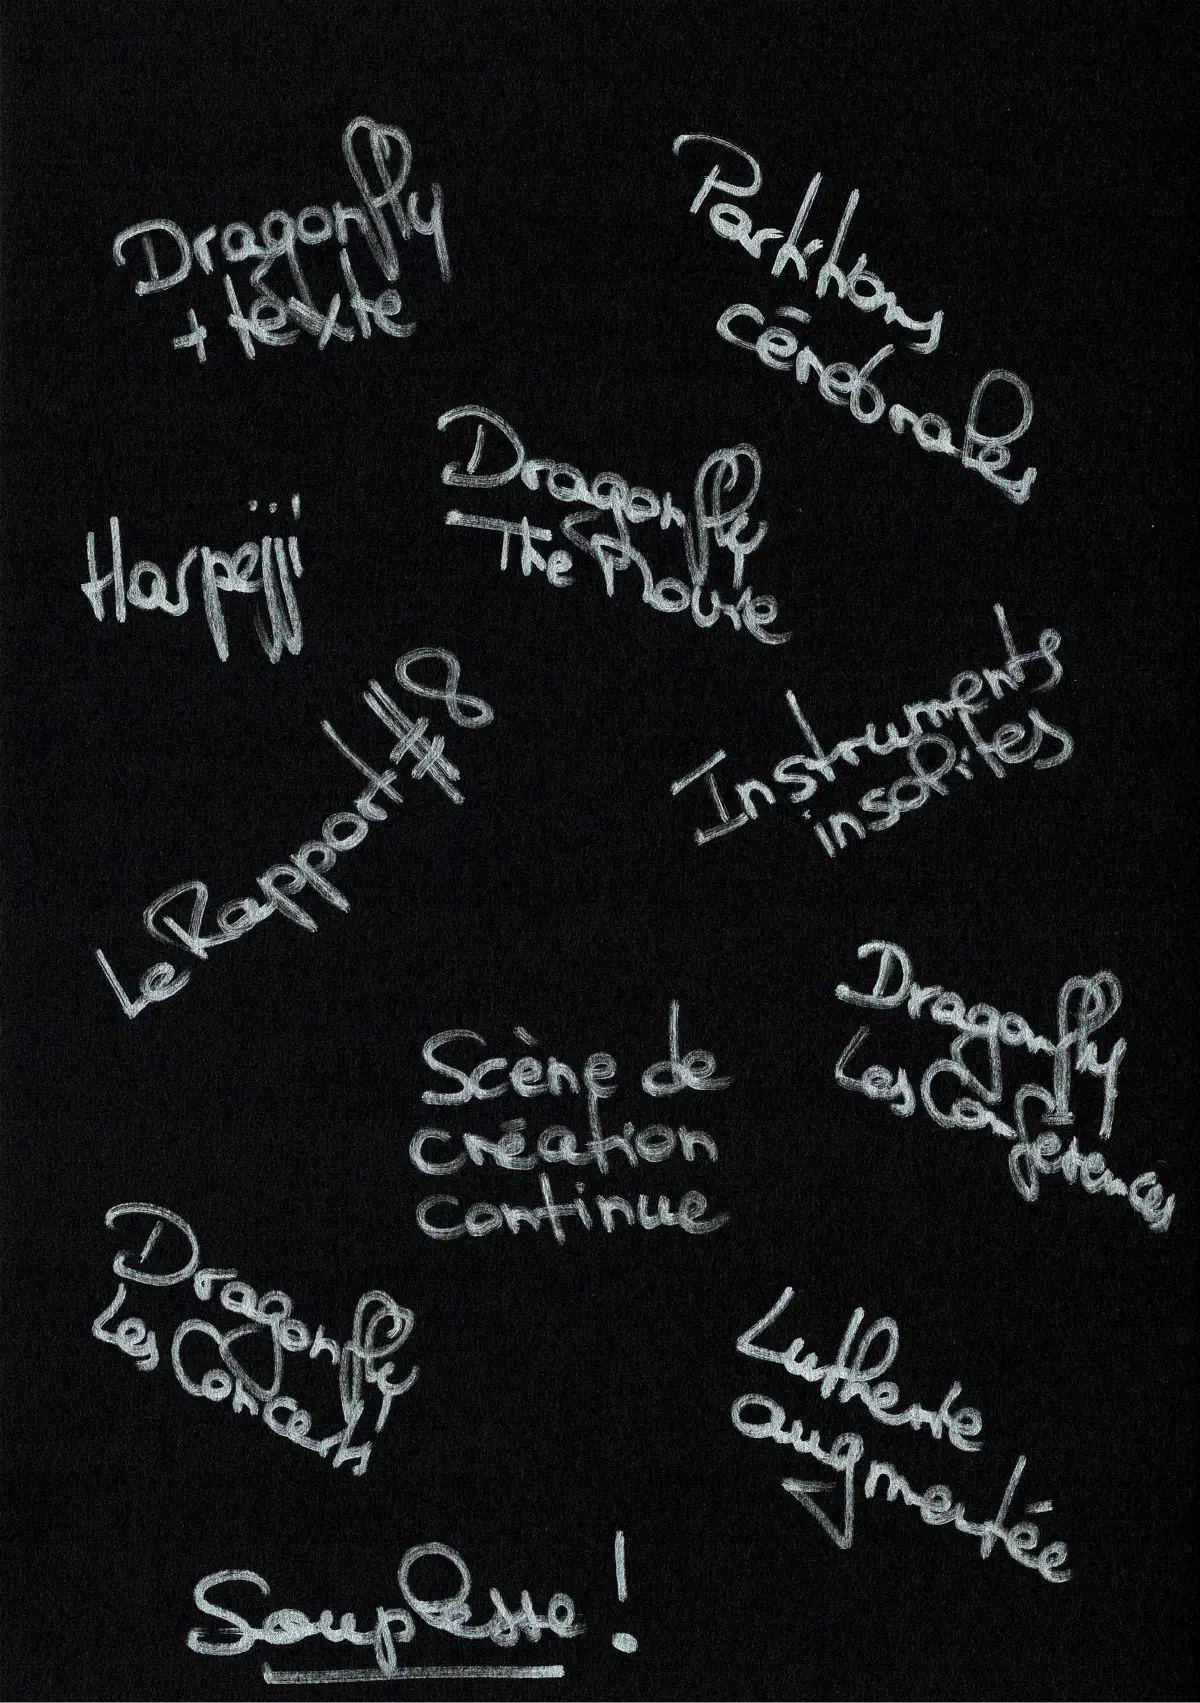 Dragonfly
+ texte
Partitions
cérébrales
Dragonfly
The Movie
Harpejji
Instruments
insolites
Le Rapport #8
Dragonfly
Les Conférences
Scène de
création
continue
Dragonfly
Les Concerts
Lutherie
augmentée
Souplesse !